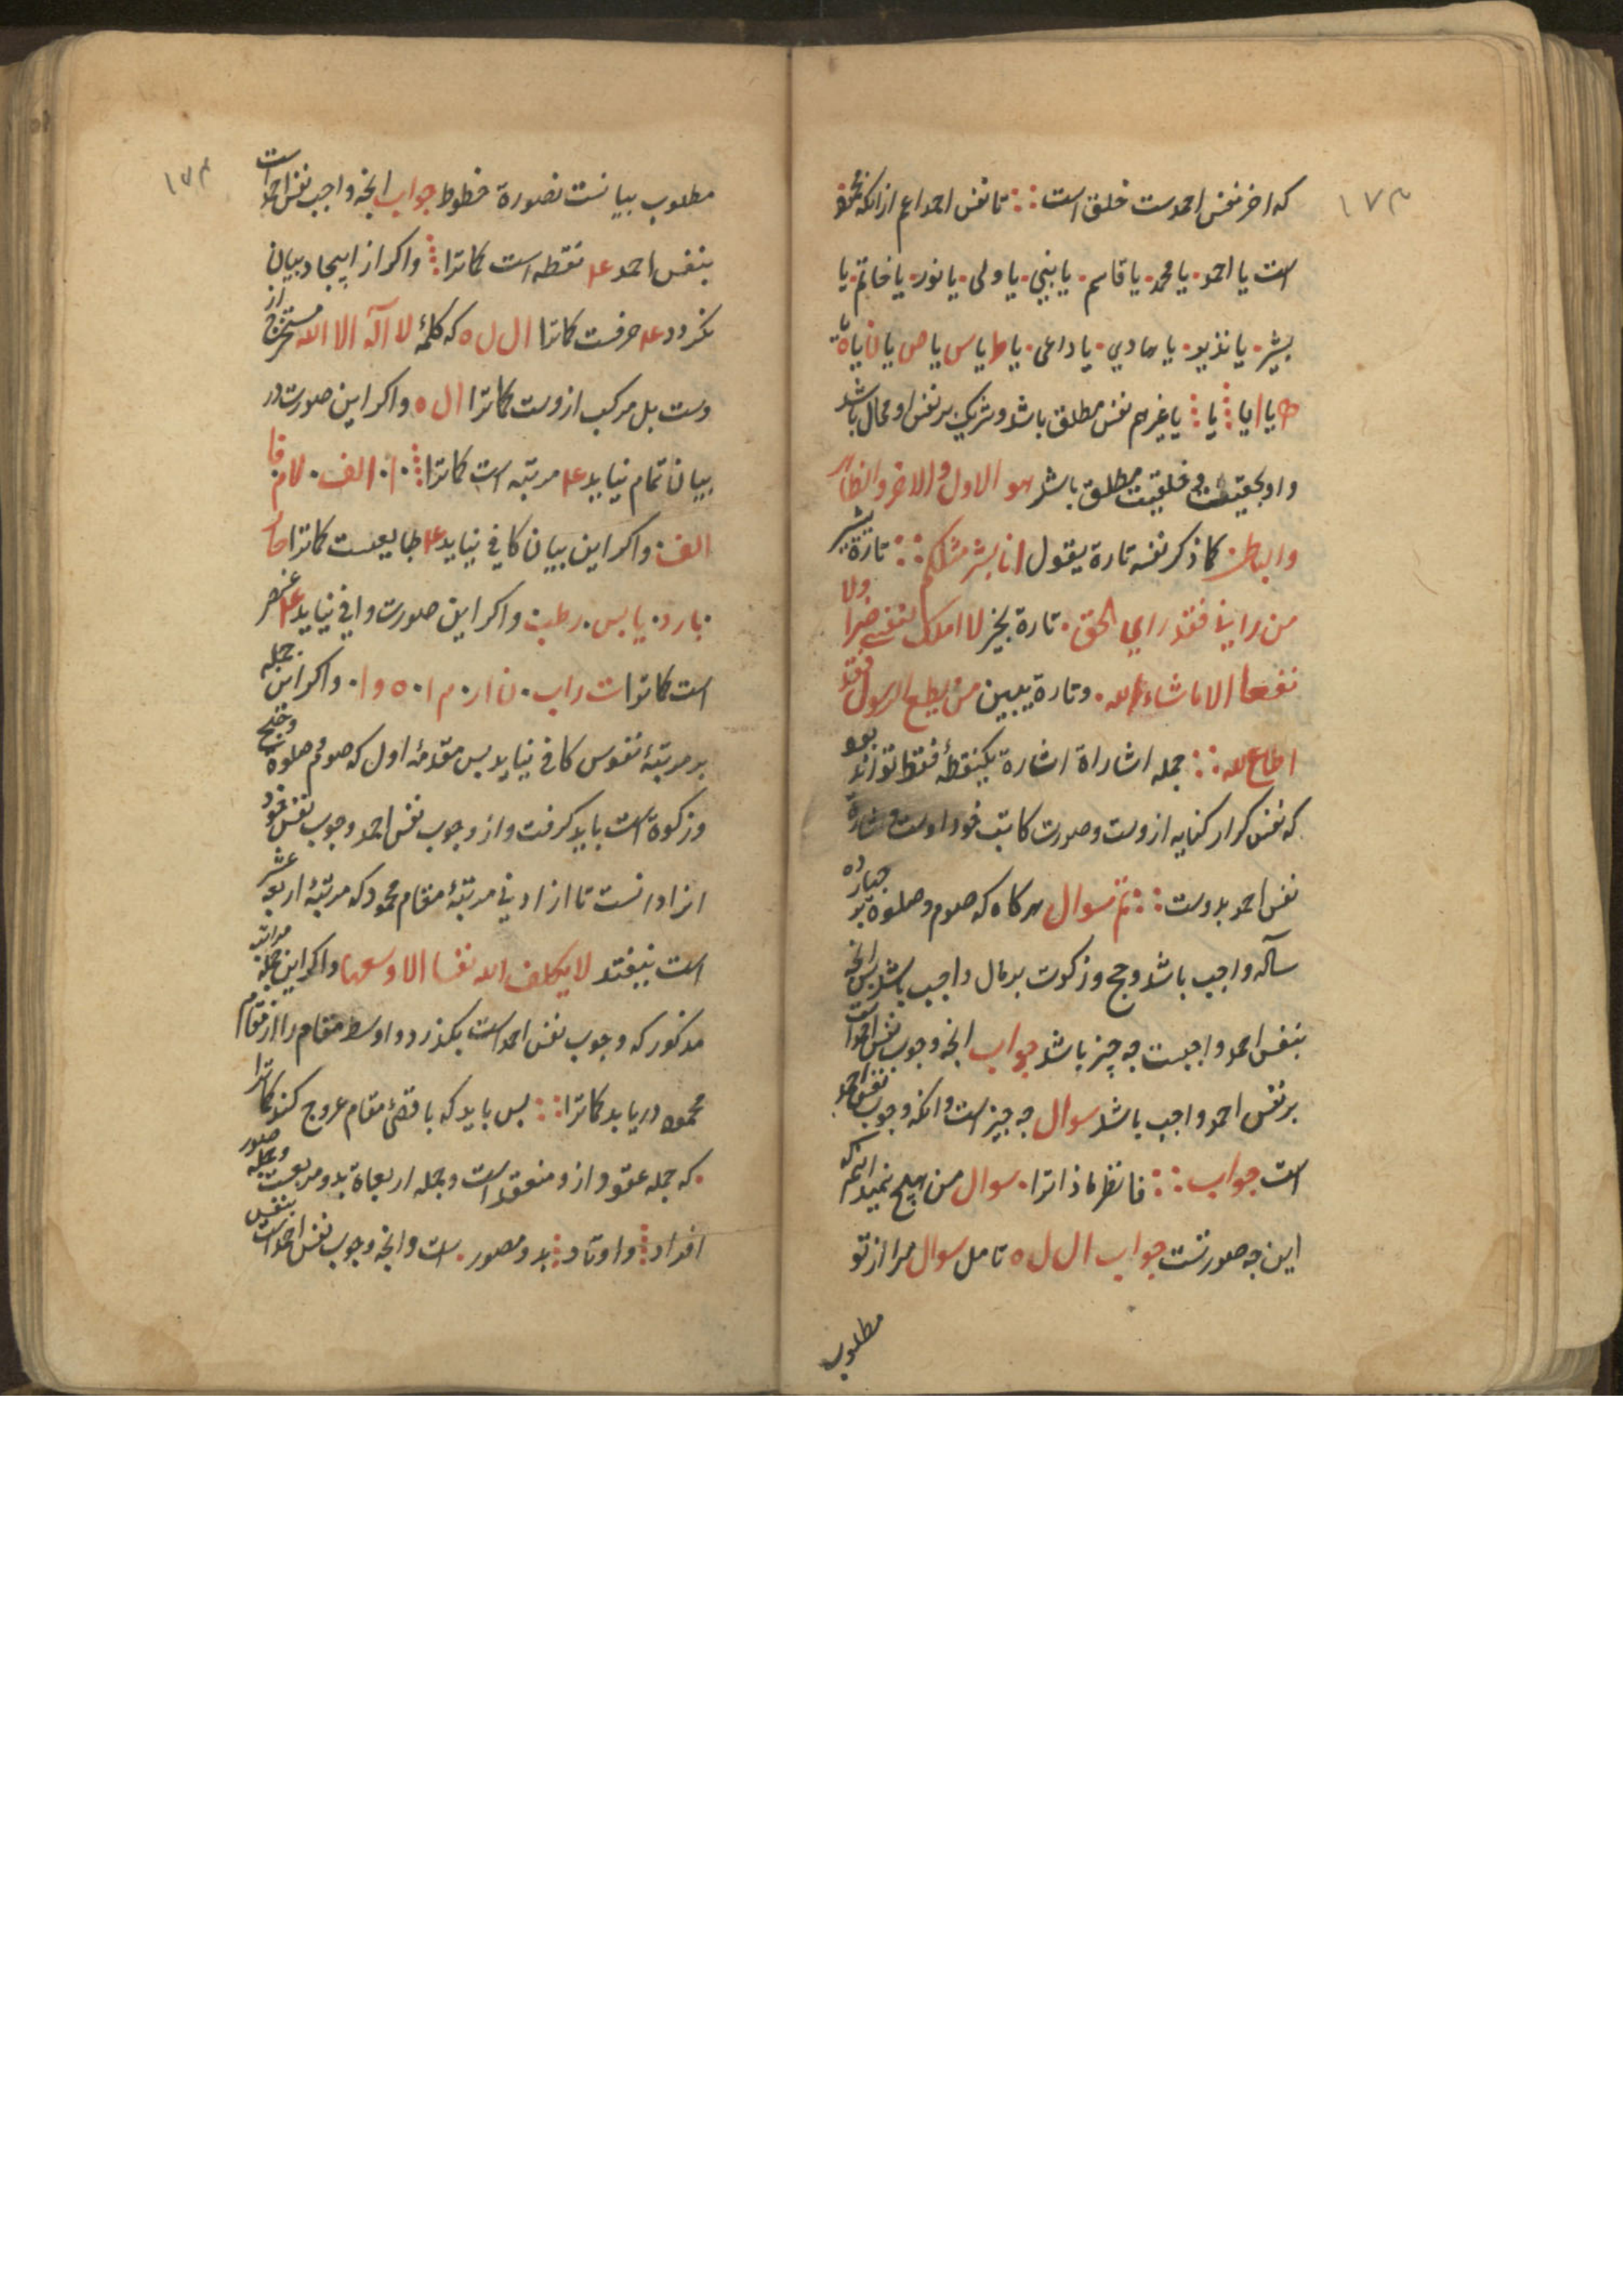 ۱۷۳
که اخر نفس احمدست خلق است ∴ تا نفس احمد اعم ازانکه محمد
است یا احمد · یا محمد · یا قاسم · یا نبی · یا ولی · یا نور · یا خاتم · یا
بشیر · یا نذیر · یا هادی · یا داعی · یا ط یا س یا ص یا ن یا ه یا
یا ا یا ⁝ یا ⁝ یا غیرهم نفس مطلق باشد و شریک بر نفس او محال باشد
و او بحقیقت و خلقیت مطلق باشد هو الاول و الاخر و الظاهر
و الباطن · کما ذکر نفسه تارة یقول انا بشر مثلکم ∴ تارة یشیر
من رانی فقد رای الحق · تارة یخبر لا املک لنفسی ضرا ولا
نفعا الا ما شاء الله · و تارة یبین من یطع الرسول فقد
اطاع الله ∴ جمله اشاراة اشارة بیکنقطهٔ فقط تواند بود
که نفس کرار کنایه ازوست و صورت کاتب خود اوست و
نفس احمد بدوست ∴ تم سوال هرکاه که صوم و صلوة بر
ساله واجب باشد و حج و زکوت بر مال واجب باشد پس انچه
بنفس احمد واجبست چه چیز باشد جواب انچه وجوب نفس احمد است
بر نفس احمد واجب باشد سوال چه چیز است وانکه وجوب نفس احمد
است جواب ∴ فانظر ماذا ترا · سوال من هیچ نمیدانم که
این چه صورتست جواب ا ل ل ه تامل سوال مرا از تو
مطلوب
۱۷۴
مطلوب بیانست نصورة خطوط جواب انچه واجب نفس احمد است
بنفس احمد ۴ نقطه است کماترا ⁝ واکر از ایجاد بیان
نکردد ۴ حرفست کماترا ا ل ل ه که کلمهٔ لا اله الا الله مستخرج از
وست بل مرکب ازوست کماترا ا ل ه · واکر این صورت در
بیان تمام نیاید ۴ مرتبه است کماترا ⁝ · ا · الف · لام · فا
الف · واکر این بیان کافی نیاید ۴ طبایعست کماترا حار
· بارد · یابس · رطب · واکر این صورت وافی نیاید ۴ عنصر
است کماترا ت راب · ن ا ر · م ا · ه و ا · واکر این جمله
بر مرتبهٔ نفوس کافی نیاید پس مقدمهٔ اول که صوم و صلوة و حج
و زکوة است باید کرفت و از وجوب نفس احمد وجوب نفس خود
انرا دانست تا از ادنی مرتبهٔ مقام محمود که مرتبهٔ اربعه عشر
است نیفتد لا یکلف الله نفسا الا وسعها واکر این جمله مراتب
مذکور که وجوب نفس احمد است بکذرد و اوسط مقام را از مقام
محمود دریابد کماترا ∴ پس باید که باقصی مقام عروج کند کماترا
· که جمله عقود ازو منعقد است و جمله اربعاة بدو مربعست و جمله صور
افراد ⁝ و اوتاد ⁝ بدو مصور · است وانچه وجوب نفس احمد است بنفس